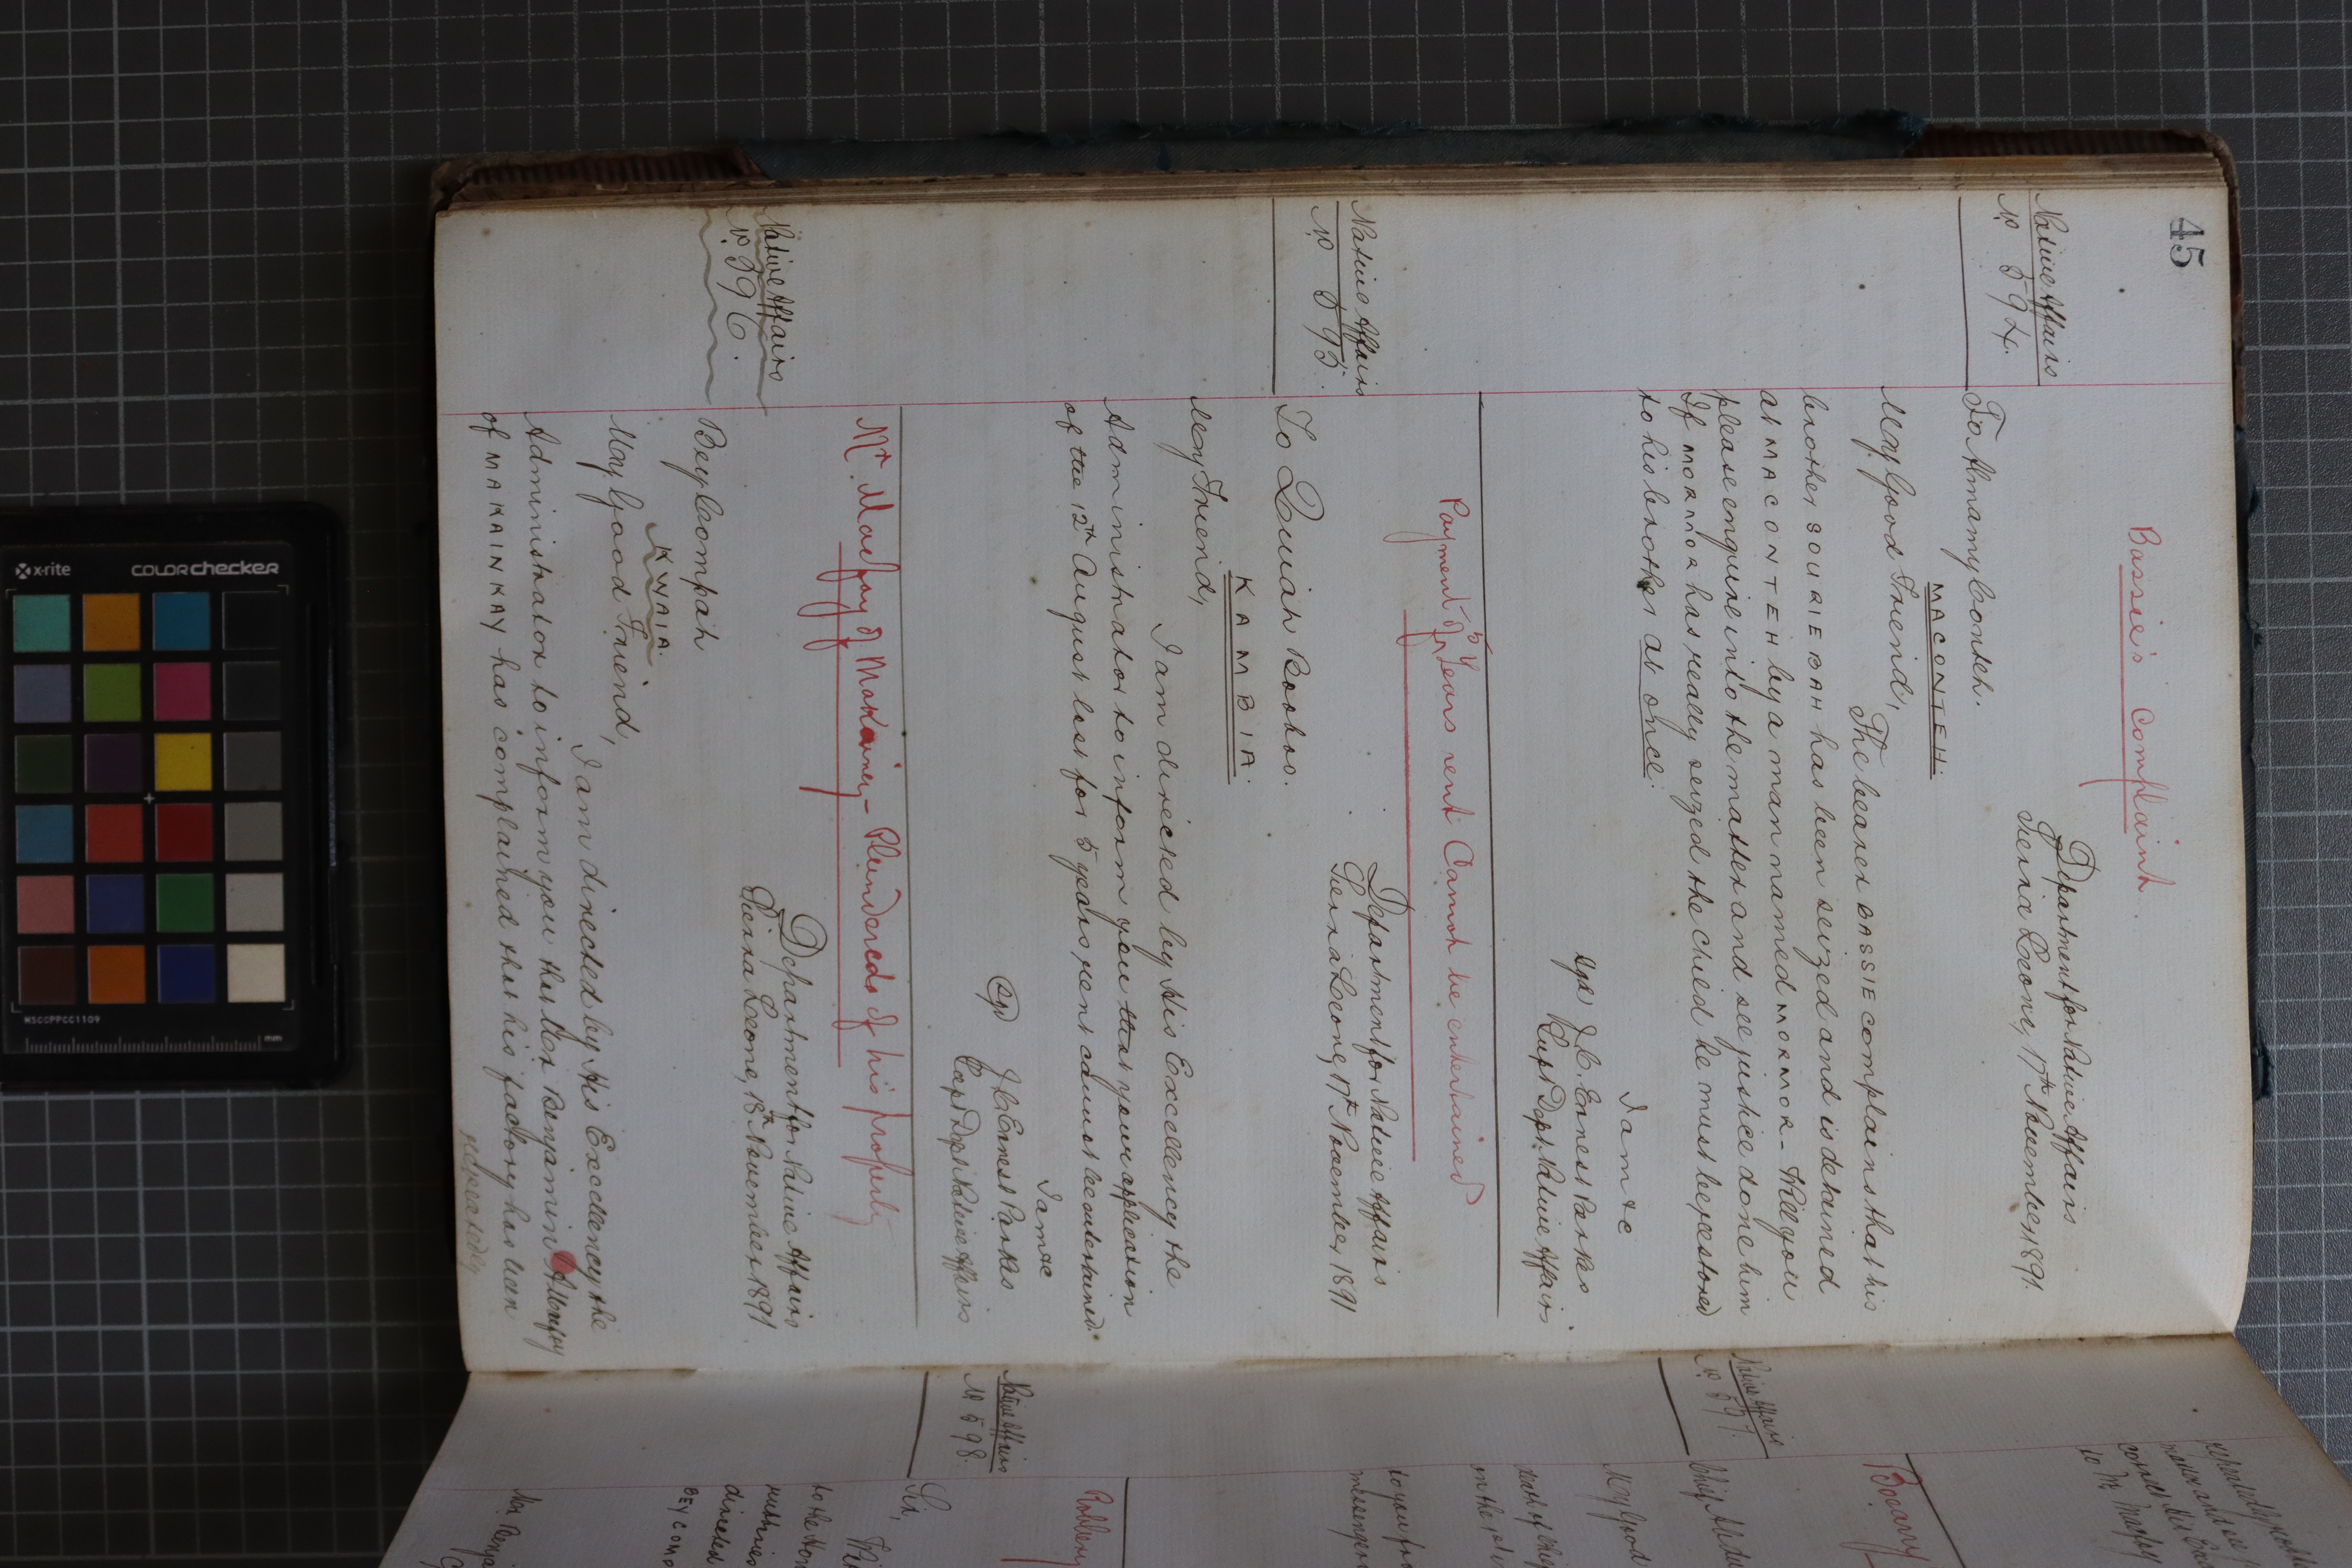 45
Bassie's Complaint
Native Affairs
No 594.
Department for Native Affairs
Sierra Leone, 17th November 1891.
To Almamy Conteh.
MACONTEH.
My Good Friend,
The bearer BASSIE complains that his
brother, SOURIE BAH has been seized and is detained
at MACONTEH by a man named MORMOR - Will you
please enquire into the matter and see justice done him
If MORMOR has really seized the child he must be restored
to his brother at once.
I am &c
Sgd J. C. Ernest Parkes
Supt Dept. Native Affairs.
Payment of 5 Years rent Cannot be entertained
Native Affairs
No 595.
Department for Native Affairs
Sierra Leone, 17th November 1891
To Quiah Bookro.
KAMBIA.
My Friend,
I am directed by His Excellency the
Administrator to inform you that your application
of the 12th August last for 5 years rent cannot be entertained.
I am &c
Sgd J C Ernest Parkes
Supt Dept Native Affairs
Mr Macfoy of Makainey - Plundered of his property
Native Affairs
No 596.
Department for Native Affairs
Sierra Leone, 18th November 1891.
Bey Compah
KWAIA.
My Good Friend,
I am directed by His Excellency the
Administrator to inform you that Mr Benjamin A Macfoy
of MAKAINKAY has complained that his factory has been
repeatedly
Native Affairs
No 597.
Boccary
My Good
to you for
messenger
Native Affairs
No 598.
Robbery
Sir,
to the Hon
directed
BEY COMP